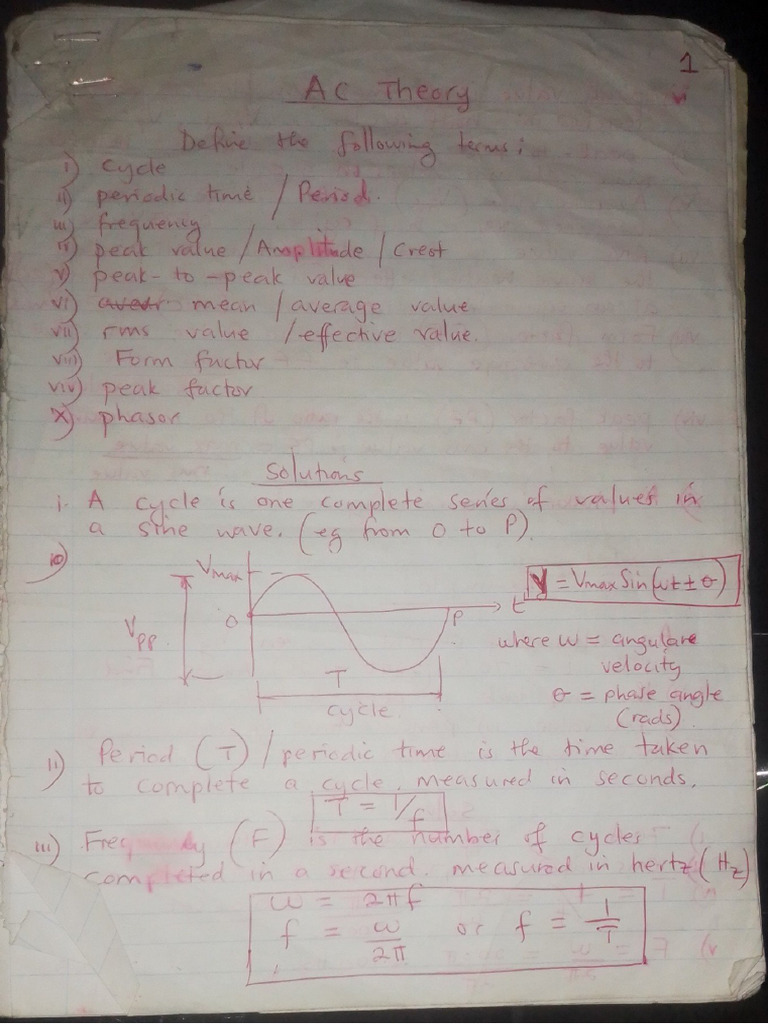 1
AC Theory
Define the following terms;
i) cycle
ii) periodic time / Period.
iii) frequency
iv) peak value / Amplitude / Crest
v) peak-to-peak value
vi) mean / average value
vii) rms value / effective value.
viii) Form factor
viv) peak factor
x) phasor
Solutions
i. A cycle is one complete series of values in
a sine wave. (eg from O to P).
Vmax
V = Vmax Sin(ωt ± θ)
O
P
t
Vpp
where ω = angulare
velocity
T
θ = phase angle
(rads)
cycle
ii) Period (T) / periodic time is the time taken
to complete a cycle. measured in seconds.
T = 1/f
iii) Frequency (F) is the number of cycles
completed in a second. measured in hertz (Hz)
ω = 2πf
f = ω/2π or f = 1/T